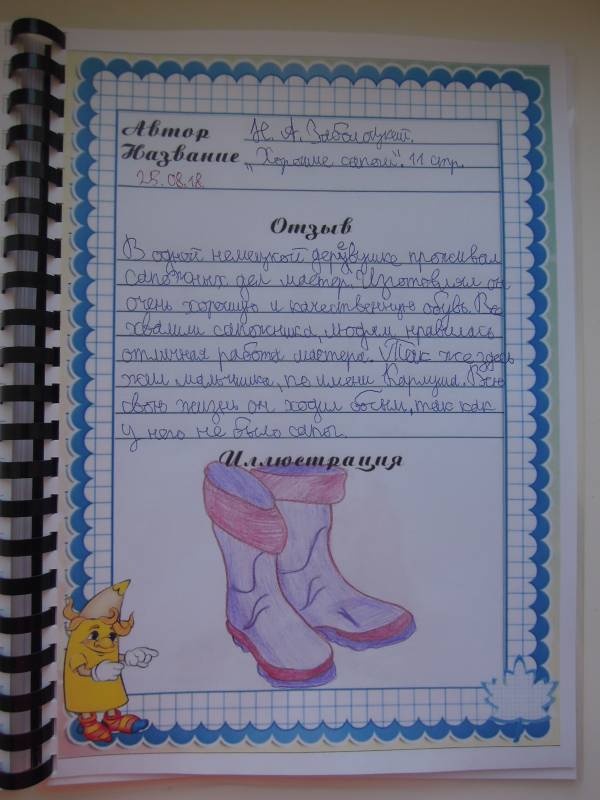 Автор Н. А. Заболоцкий.
Название „Хорошие сапоги". 11 стр.
25.08.18
Отзыв
В одной немецкой деревушке проживал
сапожных дел мастер. Изготовлял он
очень хорошую и качественную обувь. Все
хвалили сапожника, людям нравилась
отличная работа мастера. Так же здесь
жил мальчишка, по имени Карлуша. Всю
свою жизнь он ходил босым, так как
у него не было сапог.
Иллюстрация